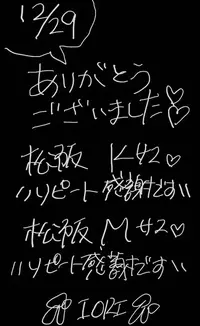 12/29
ありがとう
ございました♡♡
松阪 K様♡
\\リピート感謝です//
松阪 M様♡
\\リピート感謝です//
IORI